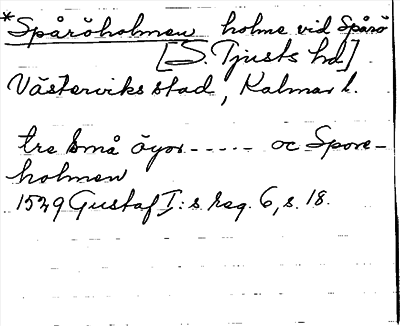 *Spåröholmen holme vid Spårö
[S. Tjusts hd]
Västerviks stad, Kalmar l.
tre små öyor ----- oc Spore-
holmen
1529 Gustaf I:s reg. 6, s. 18.